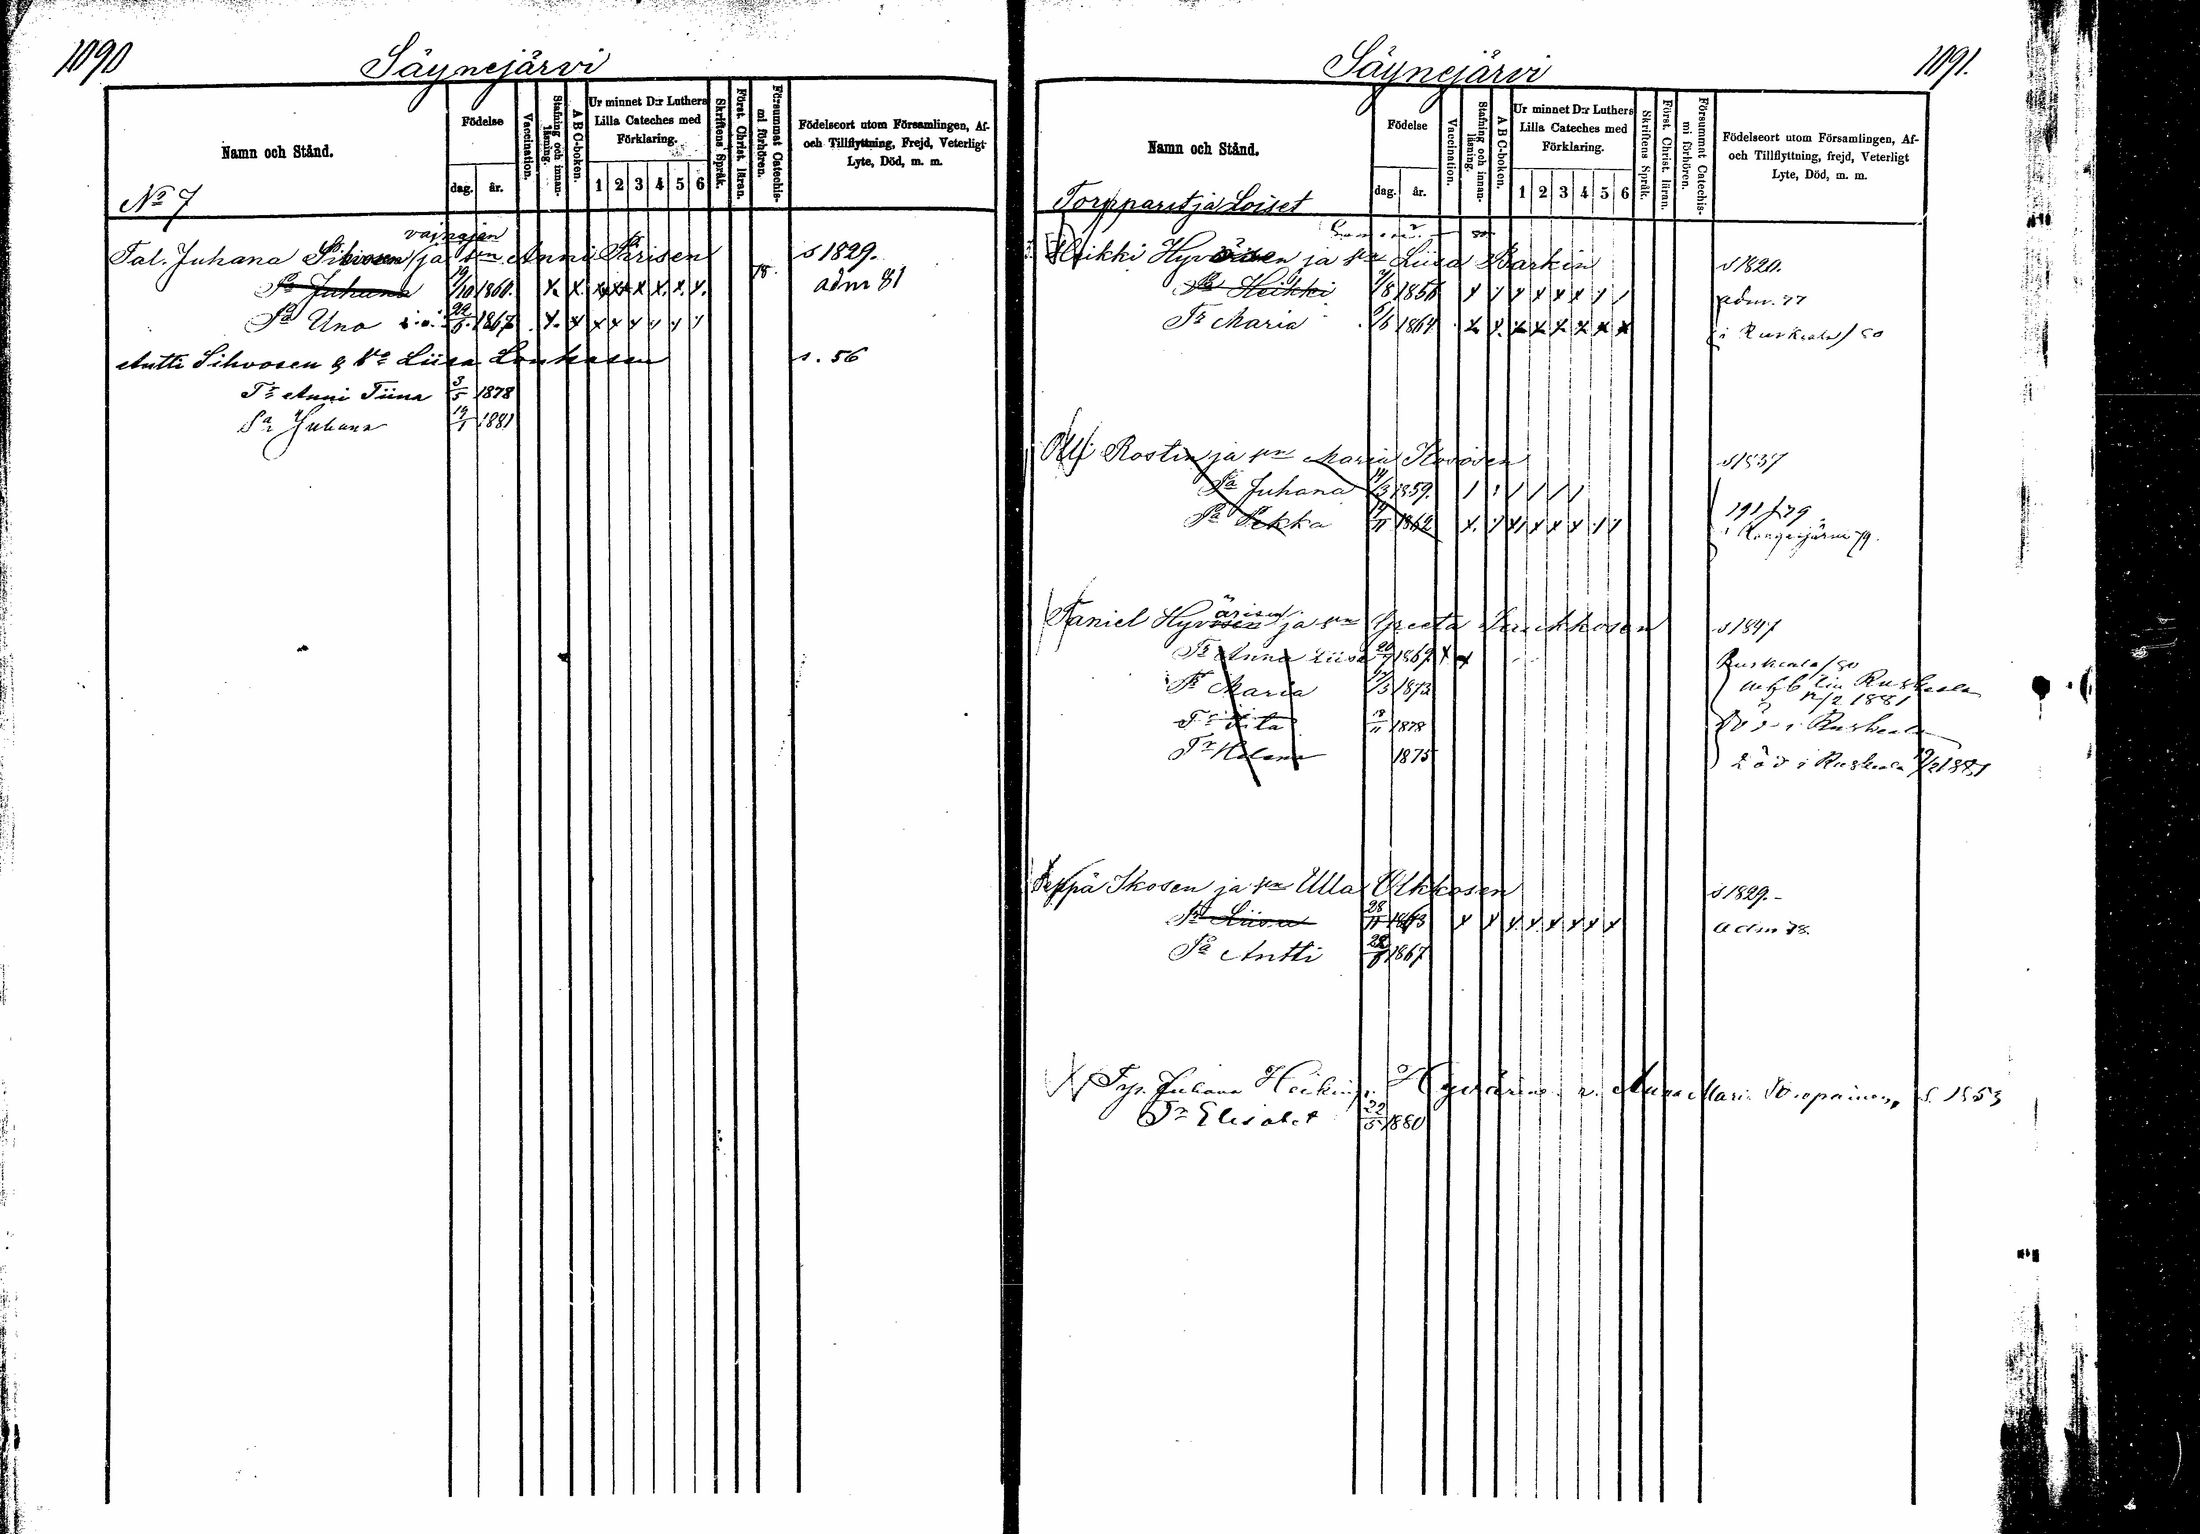 1090
Säynejärvi
Namn och Stånd.
Födelse
dag.
år.
Vaccination.
Stafning och innanläsning.
A B C-boken.
Ur minnet D:r Luthers Lilla Cateches med Förklaring.
1 2 3 4 5 6
Skriftens Språk.
Först. Christ. läran.
Försummat Catechismi förhören.
Födelseort utom Församlingen, Af- och Tillflyttning, Frejd, Veterligt Lyte, Död, m. m.
No 7
vainajan
Tal. Juhana Sihvosen ja vm Anni Pärisen s 1829.
Pa Juhana 19/10 1860. x. x. x x x x. x. x. 78. adm 81
Pa Uno 22/6 1867 x. x x x x x x x
Antti Sihvosen & Va Liisa Loukasen s. 56
Tr Anni Tiina 3/5 1878
Pa Juhana 19/1 1881
Säynejärvi
1091.
Namn och Stånd.
Födelse
dag.
år.
Vaccination.
Stafning och innanläsning.
A B C-boken.
Ur minnet D:r Luthers Lilla Cateches med Förklaring.
1 2 3 4 5 6
Skriftens Språk.
Först. Christ. läran.
Försummat Catechismi förhören.
Födelseort utom Församlingen, Af- och Tillflyttning, frejd, Veterligt Lyte, Död, m. m.
Torpparit ja Loiset
Heikki Hyvösen ja vm Liisa Parkin s 1820.
Pa Heikki /8 1856 x x x x x x x x adm. 77
Tr Maria /6 1864 x x. x x x x x x i Ruskeala/80
Olli Rostin ja vm Maria Kososen s 1837
Pa Juhana 14/3 1859.
Pa Pekka 1862 x. x x x x x x x 191 f 79
79.
ärisen
Taniel Hyvösen ja vm Greeta Turikkosen s 1847
Tr Anna Liisa 20/7 1867 x x Ruskeala/80
Tr Maria /3 1873 Ruskeala /2 1881
Tr Iita 18/11 1878 i Ruskeala
Tr Helena 1875 död i Ruskeala /2 1881
Seppä Ikosen ja vm Ulla Olkkosen s 1829.-
Tr Liisa 28/11 1863 x x x x x x x x adm 78.
Pa Antti 28/8 1867
Juhana Heikinp. Hyvärinen v. Anna Mari s. 1853
Tr Elisabet 22/5 1880